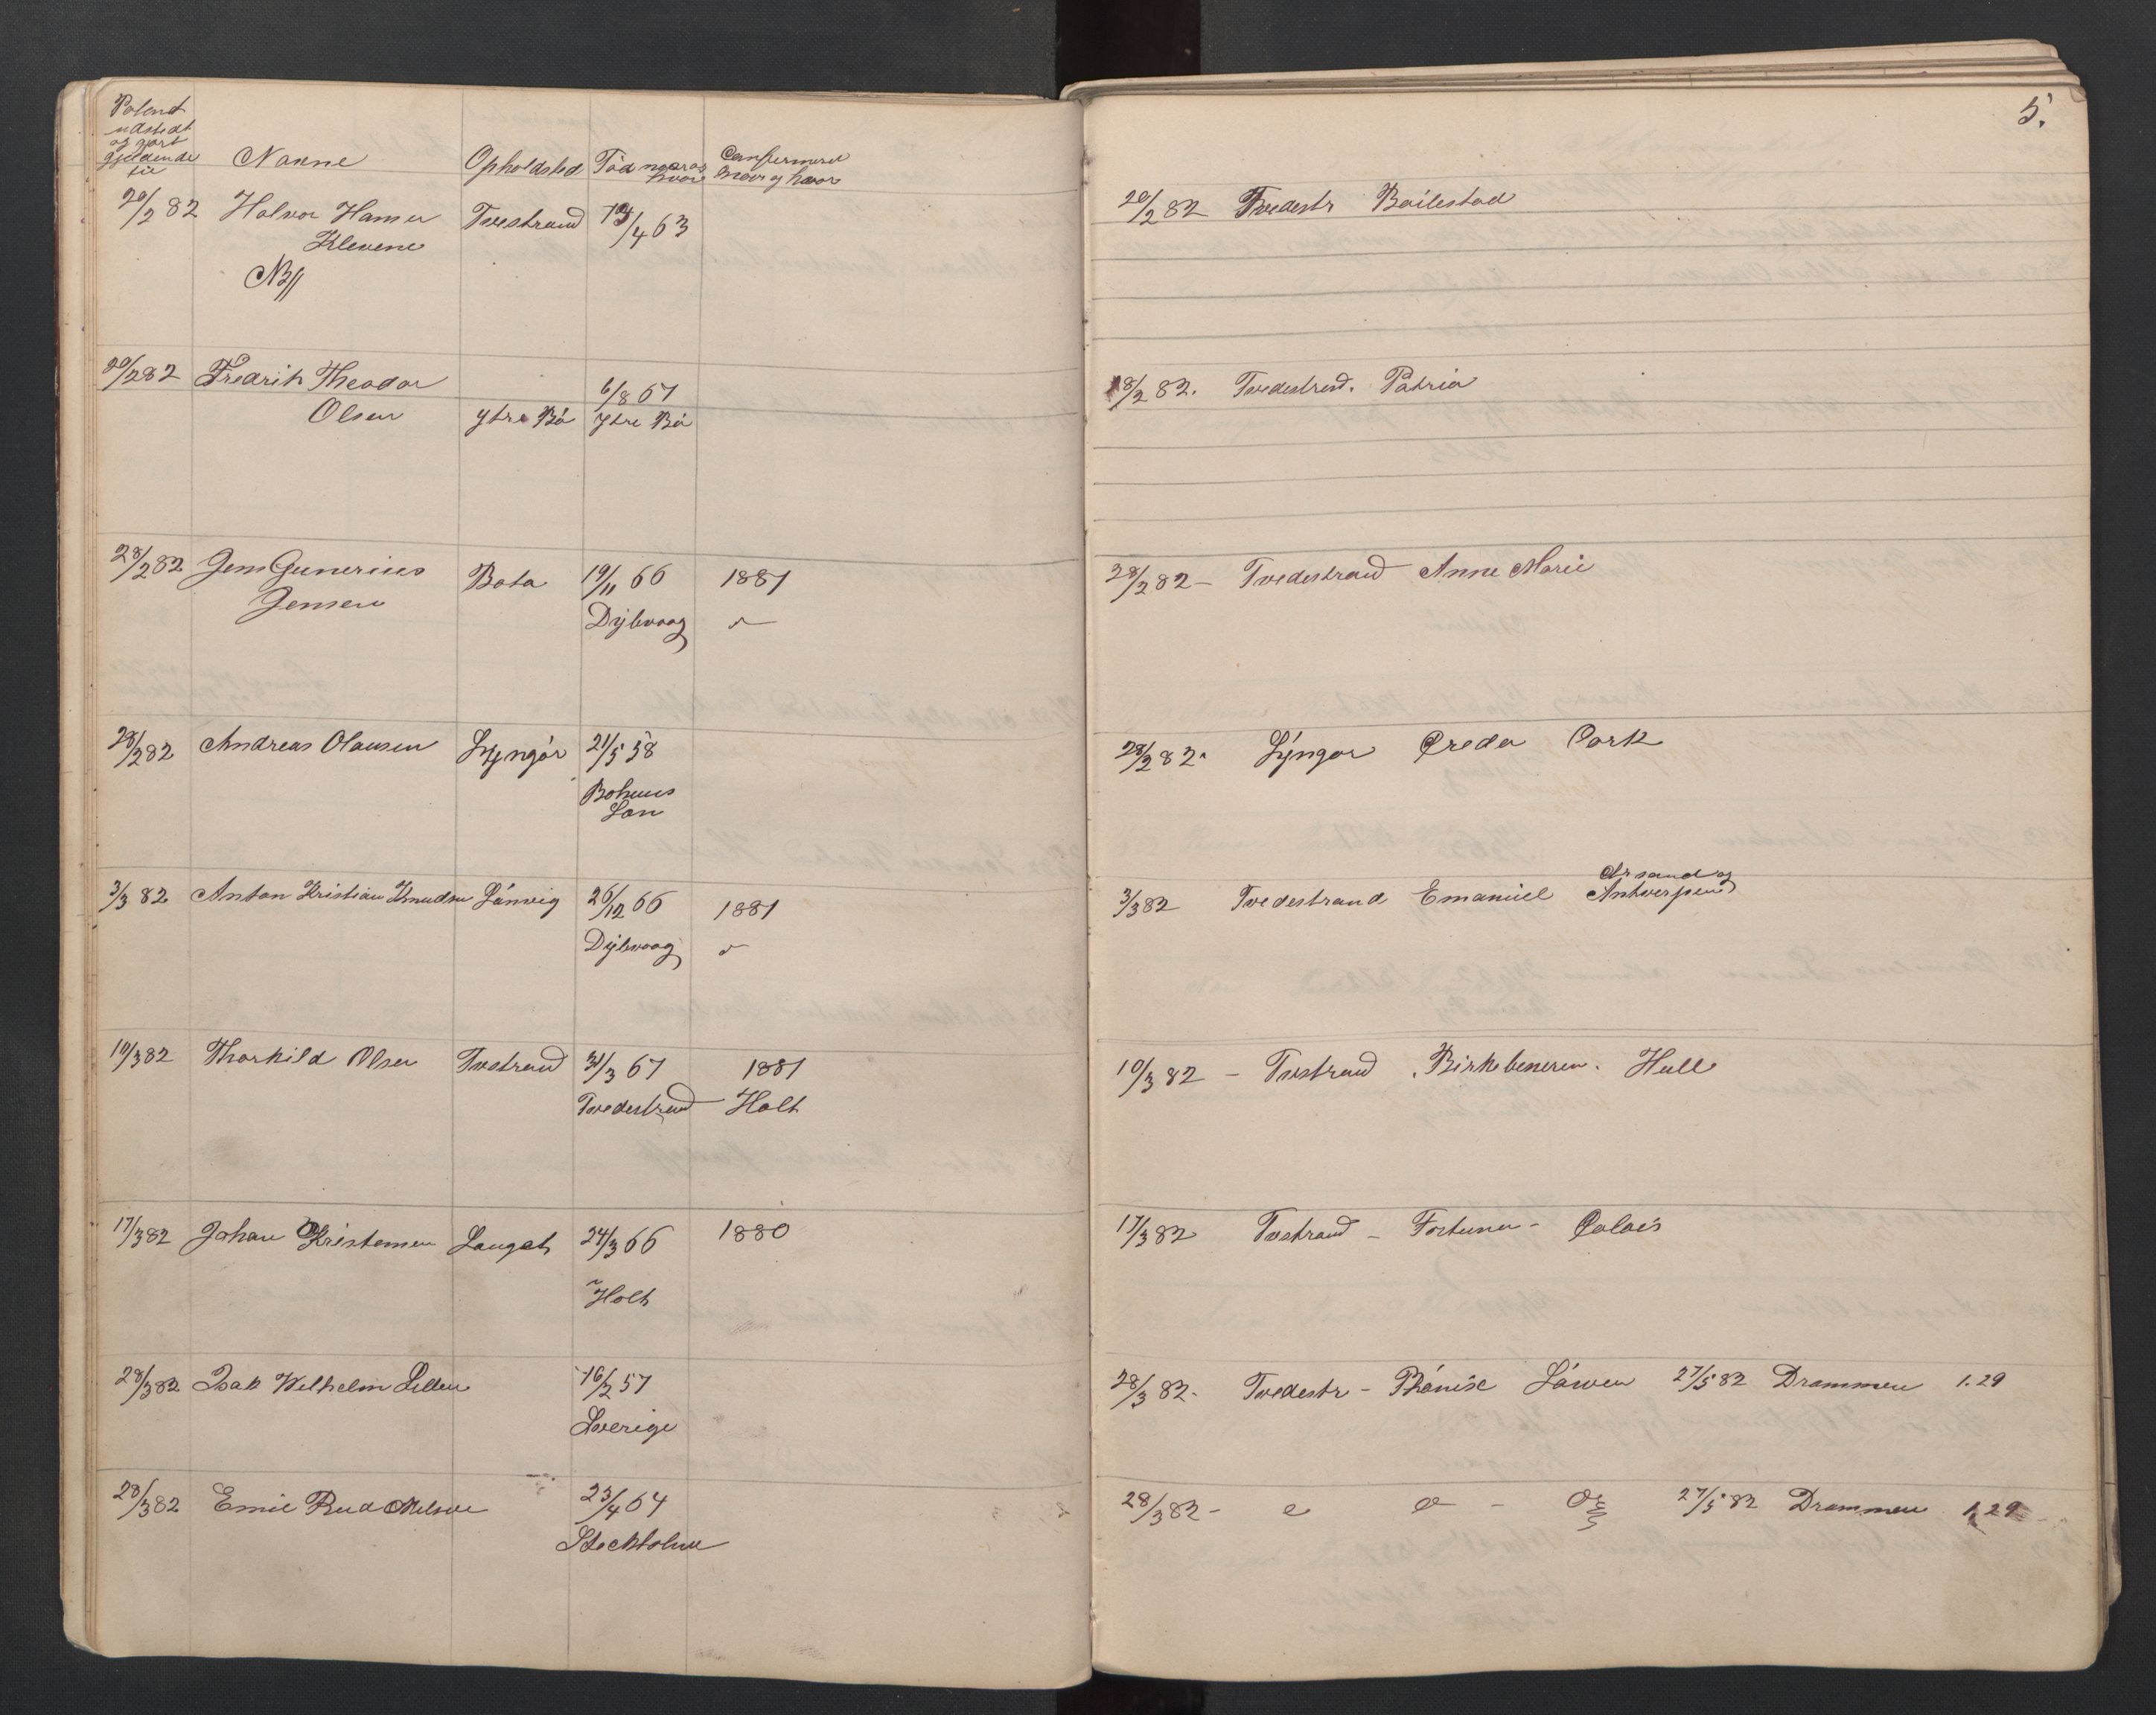 Patent
udstedt
og gjort
gjeldende
til
Navne
Opholdsted
Född naar og
hvor
Confirmeret
naar og hvor
5.
20/2 82 Halvor Hansen Tvestrand 13/4 63
Klevene
NB
20/2 82 Tvedestr Boilestad
20/2 82 Fredrik Theodor 6/8 67
Olsen Ytre Bö Ytre Bö
18/2 82. Tvedestrand. Patria
28/2 82 Jens Gunerius Bota 19/11 66 1881
Jensen Dybvaag
28/2 82 - Tvedestrand Anne Marie
28/2 82 Andreas Olausen Lyngör 21/5 58
Bohuus
Lan
28/2 82. Lyngör Creda Cork
3/3 82 Anton Kristian Knudsen Länvig 26/12 66 1881
Dybvaag
3/3 82 Tvedestrand Emanuel Arsand og
Antwerpen
10/3 82 Thorkild Olsen Tvestrand 31/3 67 1881
Tvedestrand Holt
10/3 82 - Tvestrand Birkebeneren. Hull
17/3 82 Johan Kristensen Langet 24/3 66 1880
Holt
17/3 82 Tvstrand - Fortuna - Calais
28/3 82 Isak Welhelm Lellen 16/2 57
Sverige
28/3 82. Tvedestr - Phönix Löwen 27/5 82 Drammen 1.29
28/3 82 Emil Rud Melsen 23/4 64
Stockholm
28/3 82 - 27/5 82 Drammen 1.29